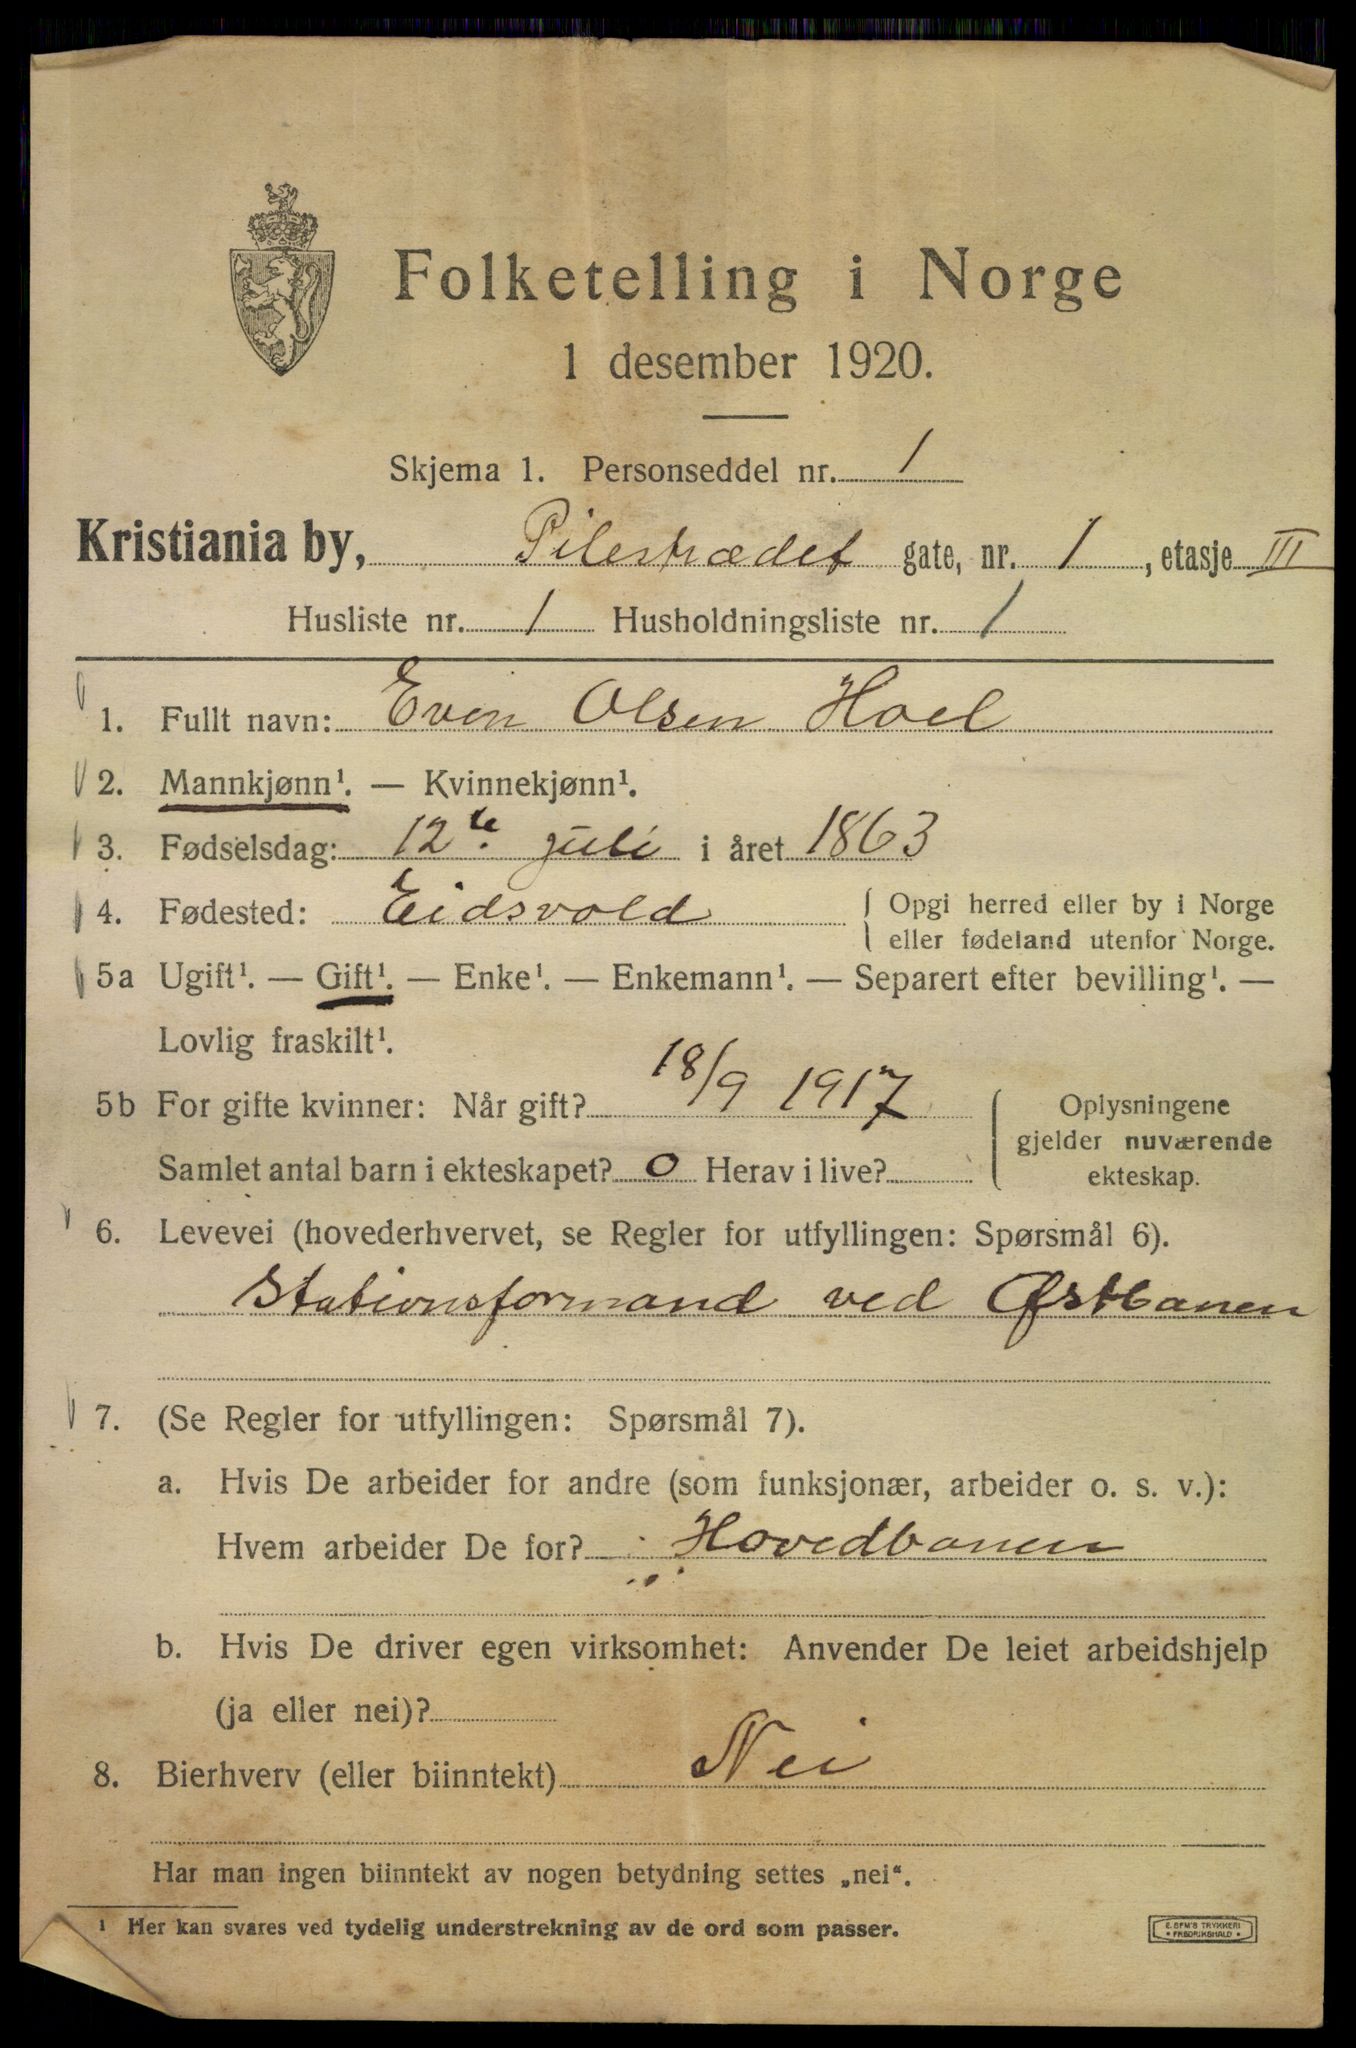 Folketelling i Norge
1 desember 1920.
Skjema 1. Personseddel nr. 1
Kristiania by, Pilestrædet gate, nr. 1, etasje III
Husliste nr. 1 Husholdningsliste nr. 1
1. Fullt navn: Even Olsen Hoel
2. Mannkjønn¹. — Kvinnekjønn¹.
3. Fødselsdag: 12te juli i året 1863
4. Fødested: Eidsvold { Opgi herred eller by i Norge
eller fødeland utenfor Norge.
5a Ugift¹. — Gift¹. — Enke¹. — Enkemann¹. — Separert efter bevilling¹. —
Lovlig fraskilt¹.
5b For gifte kvinner: Når gift? 18/9 1917 { Oplysningene
gjelder nuværende
Samlet antal barn i ekteskapet? 0 Herav i live?
ekteskap.
6. Levevei (hovederhvervet, se Regler for utfyllingen: Spørsmål 6).
Stationsformand ved Østbanen
7. (Se Regler for utfyllingen: Spørsmål 7).
a. Hvis De arbeider for andre (som funksjonær, arbeider o. s. v.):
Hvem arbeider De for? Hovedbanen
b. Hvis De driver egen virksomhet: Anvender De leiet arbeidshjelp
(ja eller nei)?
8. Bierhverv (eller biinntekt) Nei
Har man ingen biinntekt av nogen betydning settes „nei“.
¹ Her kan svares ved tydelig understrekning av de ord som passer.
E. SEM'S TRYKKERI
FREDRIKSHALD